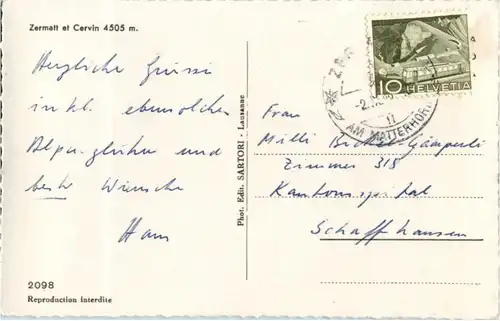 Zermatt et Cervin 4505 m.
Herzliche Grüsse
inkl. ebensolches
Alpenglühn und
beste Wünsche
Hans
2098
Reproduction interdite
Phot. Edit. SARTORI - Lausanne
10 HELVETIA
AM MATTERHORN
Frau
Milli Bickel-Gamperli
Zimmer 315
Kantonsspital
Schaffhausen